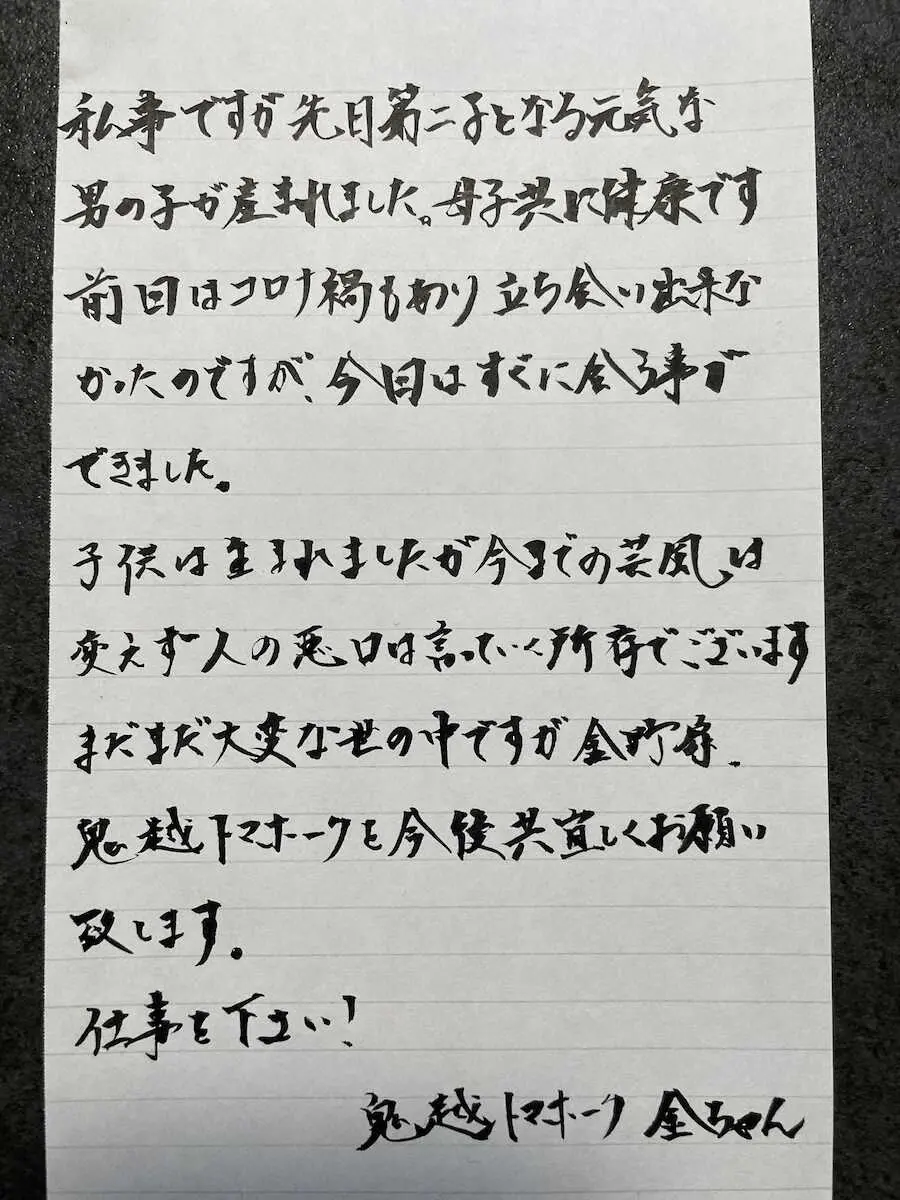 私事ですが先日第二子となる元気な
男の子が産まれました。母子共に健康です
前回はコロナ禍もあり立ち会い出来な
かったのですが、今回はすぐに会う事が
できました。
子供は生まれましたが今までの芸風は
変えず人の悪口は言っていく所存でございます
まだまだ大変な世の中ですが金野席、
鬼越トマホークを今後共宜しくお願い
致します。
仕事を下さい!
鬼越トマホーク 金ちゃん